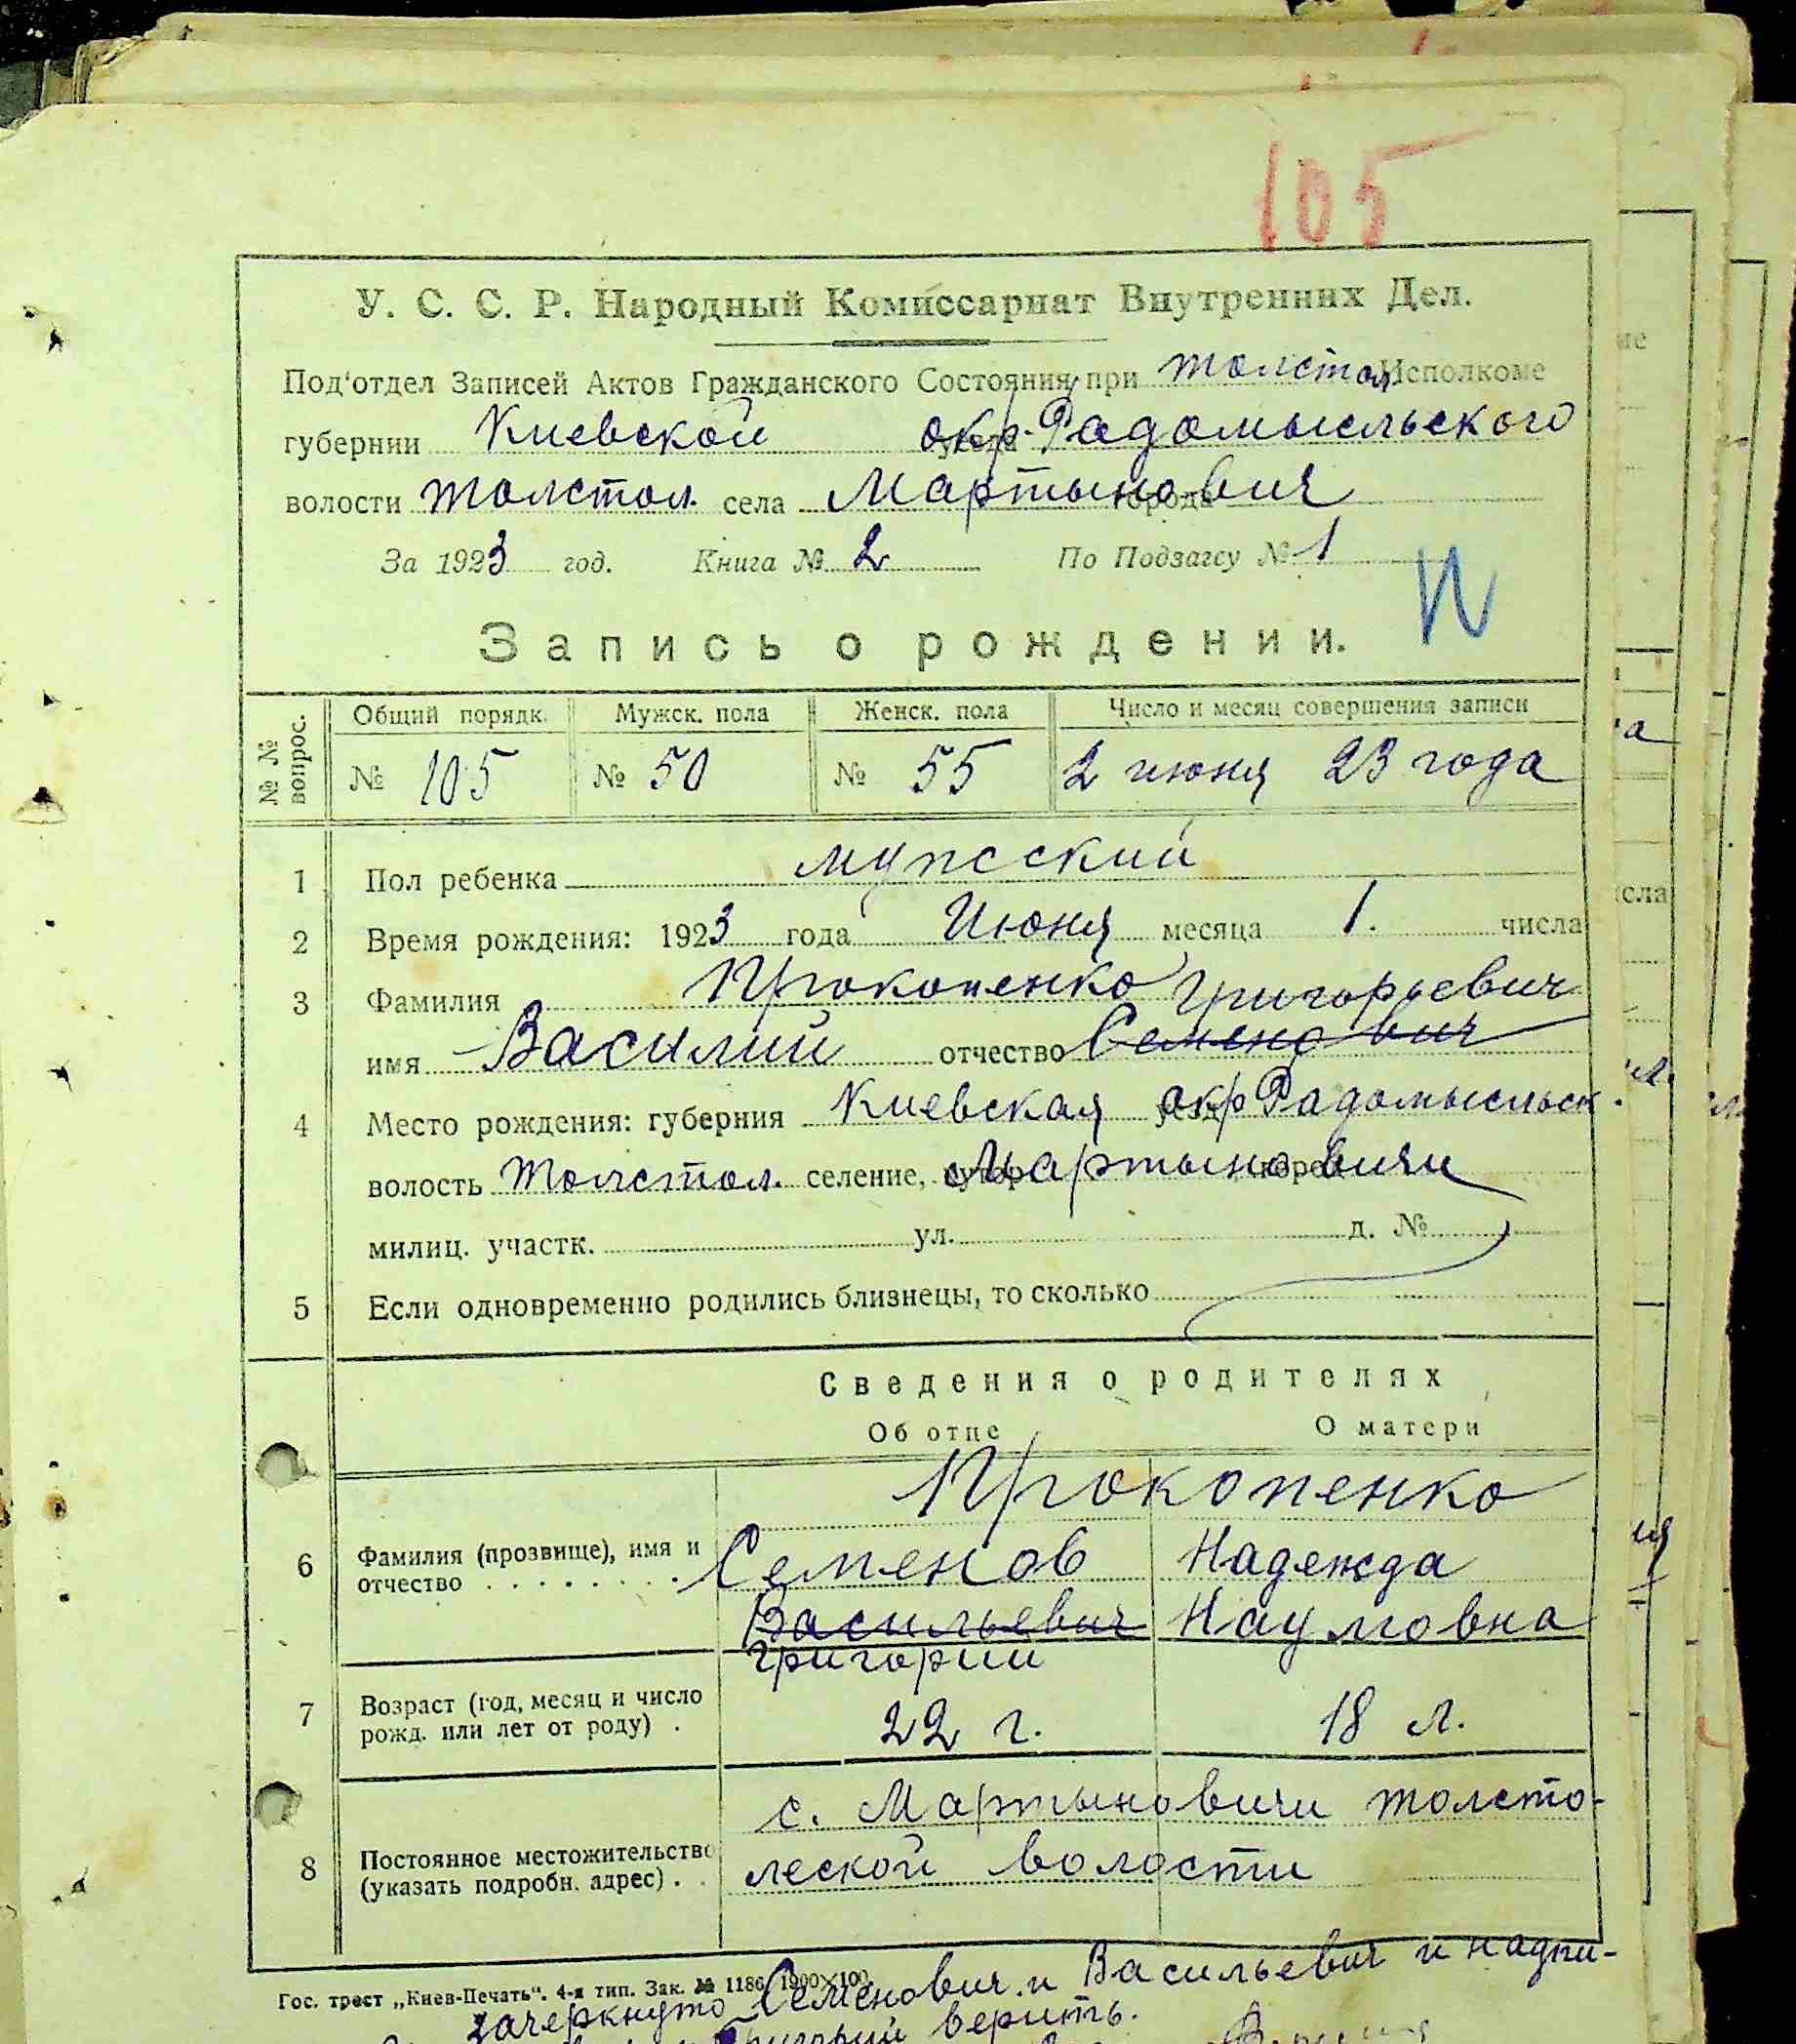 105
У. С. С. Р. Народный Комиссариат Внутренних Дел.
Под'отдел Записей Актов Гражданского Состояния при Толстол. Исполкоме
губернии Киевской окр. Радомысльского
волости Толстол. села Мартынович
За 1923 год. Книга № 2 По Подзагсу № 1
И
Запись о рождении.
№ № вопрос. Общий порядк. Мужск. пола Женск. пола Число и месяц совершения записи
№ 105 № 50 № 55 2 июня 23 года
1 Пол ребенка мужский
2 Время рождения: 1923 года Июня месяца 1. числа
3 Фамилия Прокопенко Григорьевич
имя Василий отчество Семенович
4 Место рождения: губерния Киевская окр Радомысльск.
волость Толстол. селение, хутор Мартыновичи
милиц. участк. ул. д. №
5 Если одновременно родились близнецы, то сколько
Сведения о родителях
Об отце О матери
Прокопенко
6 Фамилия (прозвище), имя и отчество Семенов Надежда
Васильевич Наумовна
Григорий
7 Возраст (год, месяц и число рожд. или лет от роду) . 22 г. 18 л.
с. Мартыновичи Толсто-
8 Постоянное местожительство (указать подробн. адрес) . . леской волости
Гос. трест „Киев-Печать". 4-я тип. Зак. № 1186 1900×100
зачеркнуто Семенович и Васильевич и надпи-
Григорий верить.